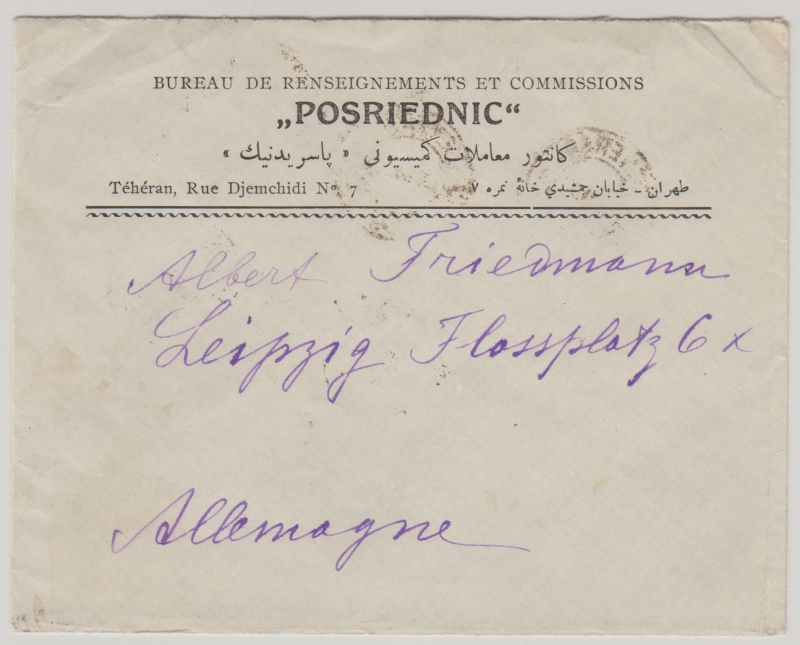 BUREAU DE RENSEIGNEMENTS ET COMMISSIONS
„POSRIEDNIC“
كانتور معاملات كميسيونى « پاسريدنيك »
Téhéran, Rue Djemchidi Nº 7
طهران ـ خيابان جمشيدي خانهٔ نمره ۷
Albert Friedmann
Leipzig Flossplatz 6
Allemagne